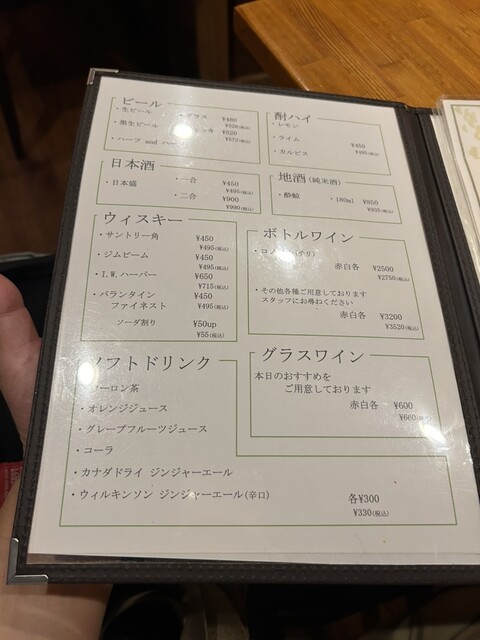 ビール
・生ビール
・グラス ¥480
¥528(税込)
・黒生ビール
¥520
¥572(税込)
・ハーフ and
酎ハイ
・レモン
・ライム ¥450
・カルピス ¥495(税込)
日本酒
・日本盛 ・一合 ¥450
¥495(税込)
・二合 ¥900
¥990(税込)
地酒(純米酒)
・酔鯨 ・180ml ¥850
¥935(税込)
ウィスキー
・サントリー角 ¥450
¥495(税込)
・ジムビーム ¥450
¥495(税込)
・I.W.ハーパー ¥650
¥715(税込)
・バランタイン ¥450
ファイネスト ¥495(税込)
ソーダ割り ¥50up
¥55(税込)
ボトルワイン
(チリ)
赤白各 ¥2500
¥2750(税込)
・その他各種ご用意しております
スタッフにお尋ねください
赤白各 ¥3200
¥3520(税込)
グラスワイン
本日のおすすめを
ご用意しております
赤白各 ¥600
¥660(税込)
ソフトドリンク
ウーロン茶
・オレンジジュース
・グレープフルーツジュース
・コーラ
・カナダドライ ジンジャーエール
・ウィルキンソン ジンジャーエール(辛口) 各¥300
¥330(税込)